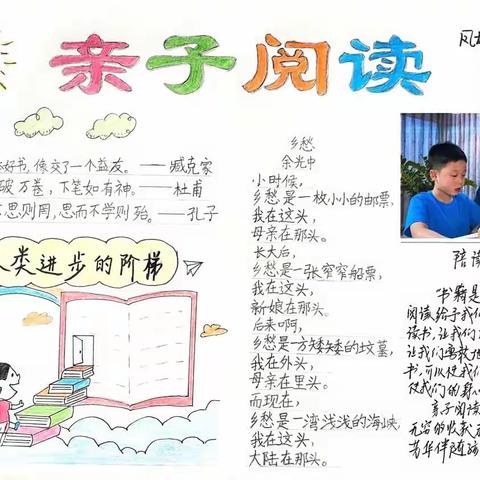 亲子阅读
好书,像交了一个益友。——臧克家
破万卷,下笔如有神。——杜甫
思则罔,思而不学则殆。——孔子
类进步的阶梯
乡愁
余光中
小时候,
乡愁是一枚小小的邮票,
我在这头,
母亲在那头。
长大后,
乡愁是一张窄窄船票,
我在这头,
新娘在那头。
后来啊,
乡愁是一方矮矮的坟墓,
我在外头,
母亲在里头。
而现在,
乡愁是一湾浅浅的海峡,
我在这头,
大陆在那头。
风
陪读
书籍是
阅读给予我们
读书,让我们
让我们
书,可以使我们
使我们的
亲子阅读
无容的收获
芳华伴随